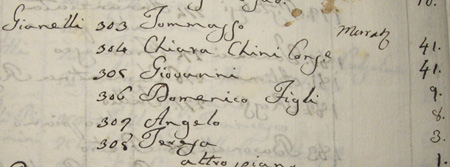 10.
Gianelli 303 Tommaso
304 Chiara Chini Conge 41.
305 Giovanni 41.
306 Domenico Figli 9.
307 Angelo 8.
308 Teresa 3.
altro piano 1.